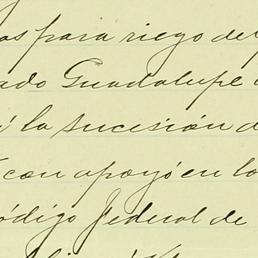 os para riego del
ado Guadalupe
la sucesión d
con apoyo en lo
ódigo Federal de